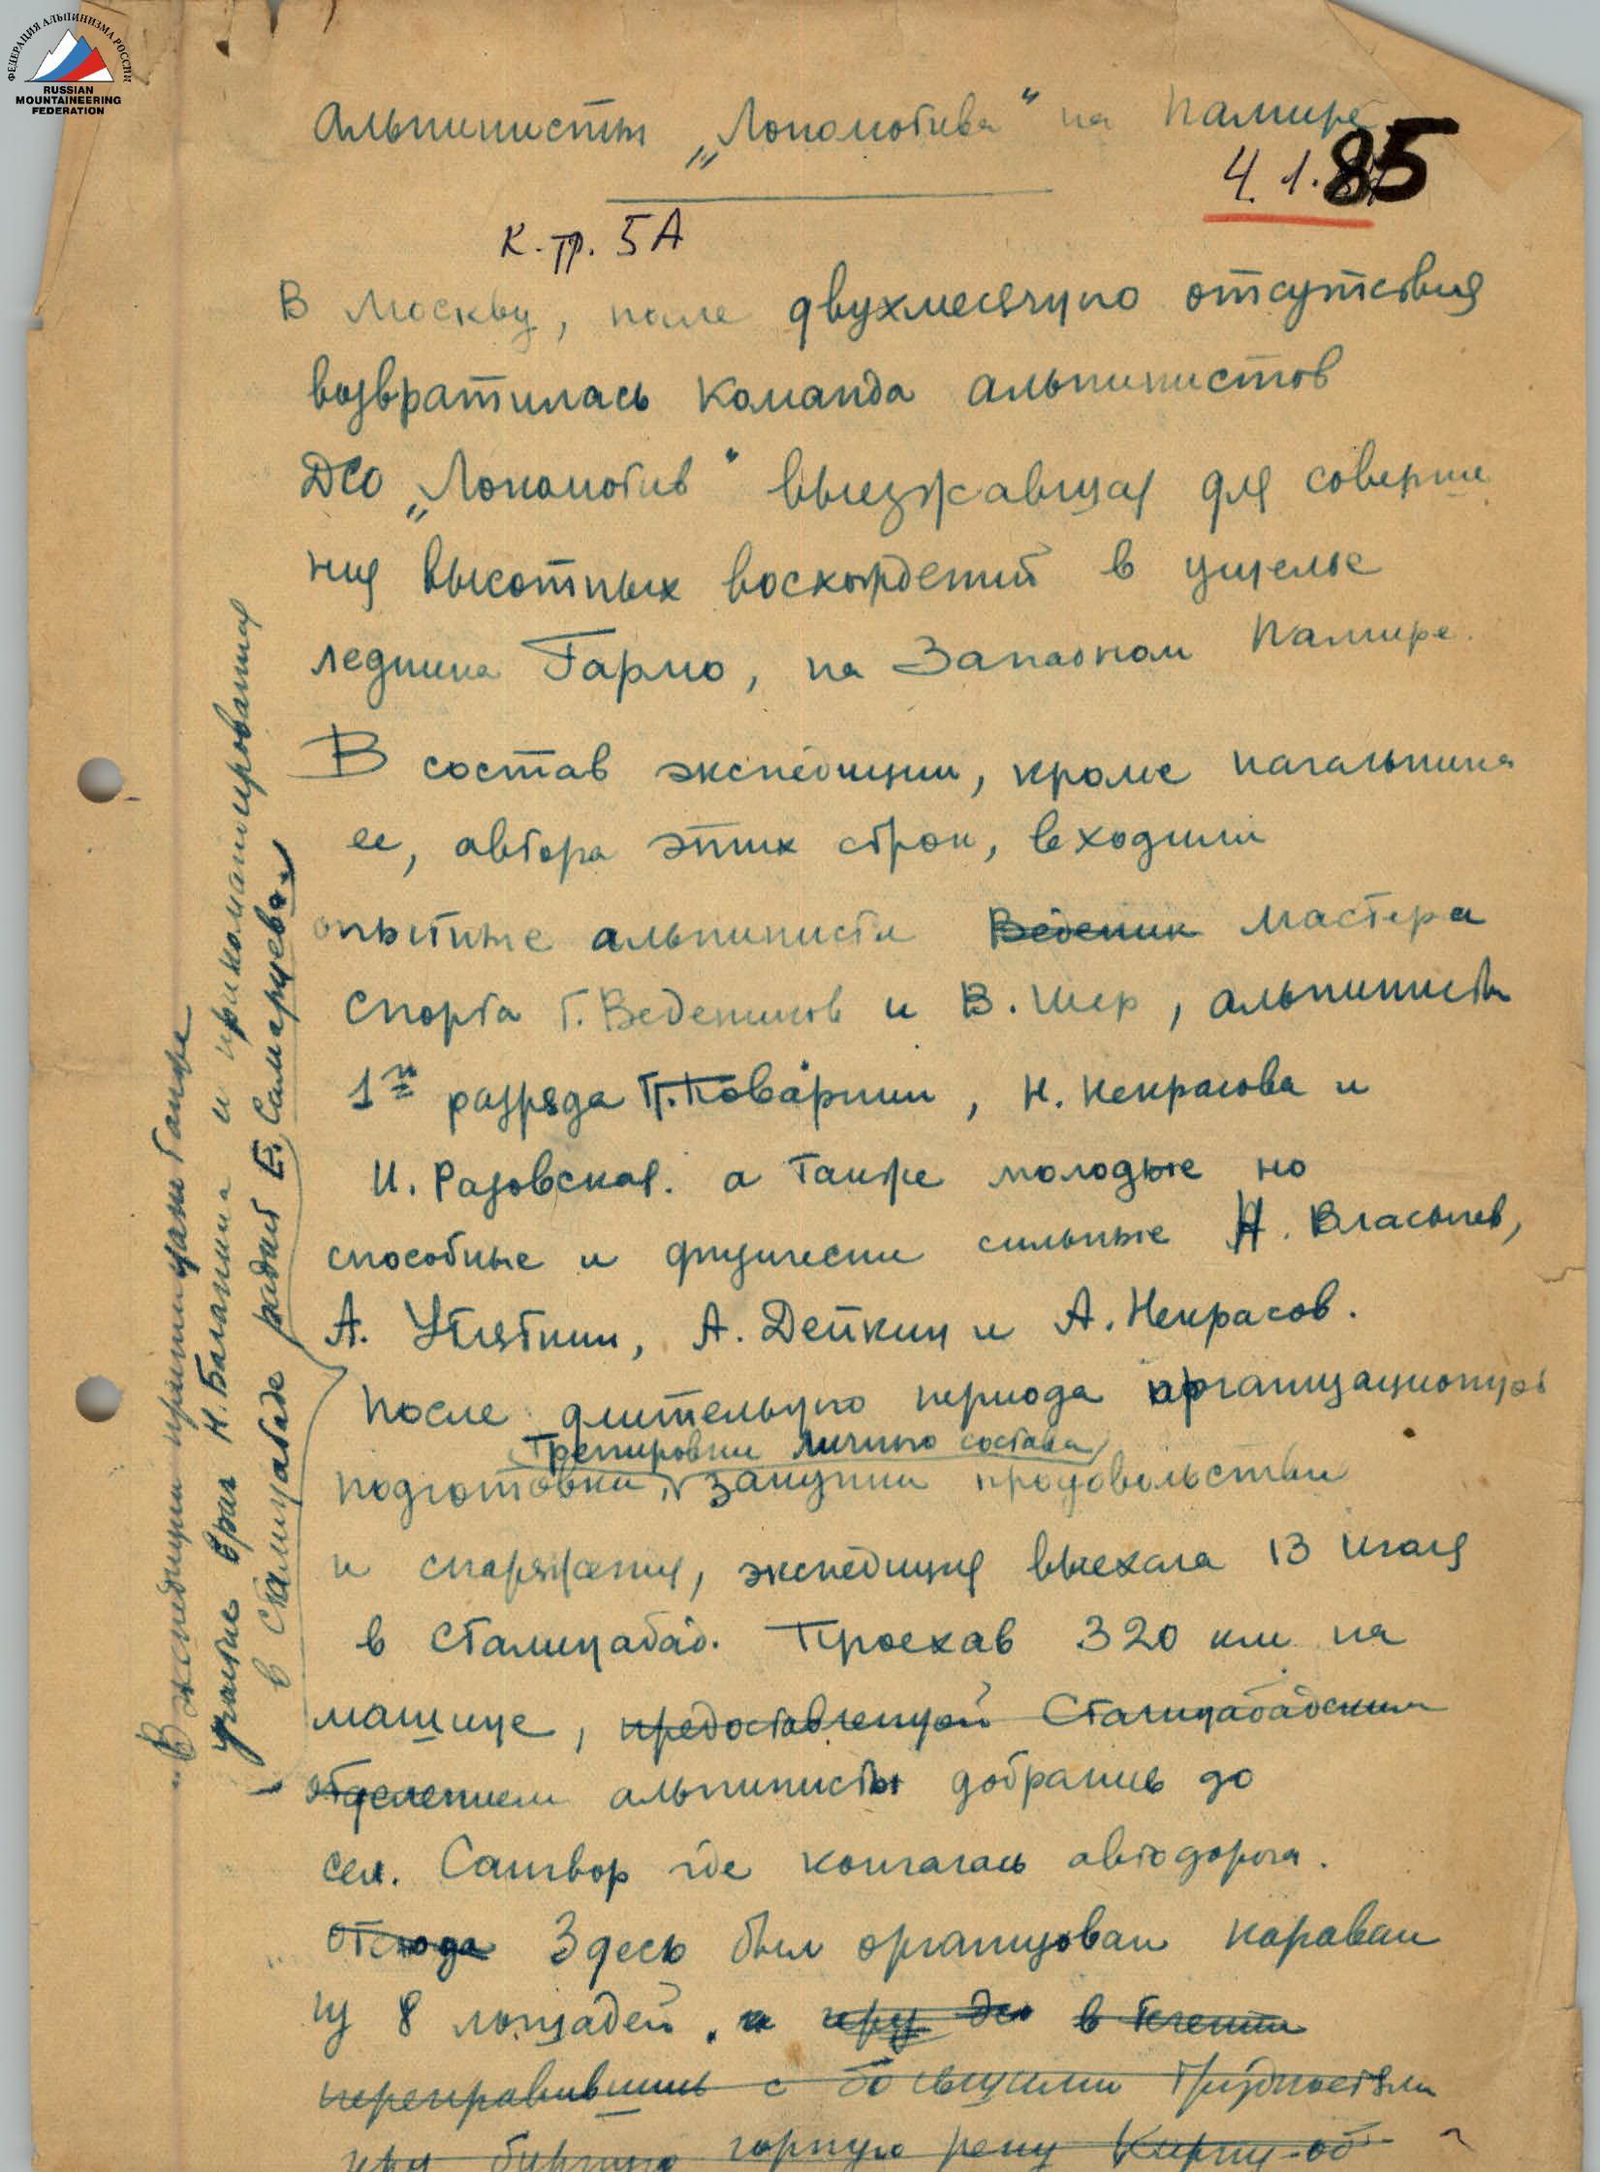 ФЕДЕРАЦИЯ АЛЬПИНИЗМА РОССИИ
RUSSIAN
MOUNTAINEERING
FEDERATION
Альпинисты „Локомотива" на Памире
85
4.1.
к.тр. 5А
В Москву, после двухмесячного отсутствия
возвратилась команда альпинистов
ДСО „Локомотив" выезжавшая для соверше
ния высотных восхождений в ущелье
ледника Гармо, на Западном Памире.
В состав экспедиции, кроме начальника
ее, автора этих строк, входили
опытные альпинисты Веденик мастера
спорта Г. Ведеников и В. Шер, альпинисты
1го разряда П. Коваркин, Н. Некрасова и
И. Разовская. а также молодые но
способные и физически сильные Н. Власычев,
А. Утяткин, А. Дейкин и А. Некрасов.
После длительного периода организационной
тренировки личного состава
подготовки, закупки продовольствия
и снаряжения, экспедиция выехала 13 июля
в Сталинабад. Проехав 320 км на
машине, предоставленной Сталинабадским
отделением альпинисты добрались до
сел. Сангвор где кончалась автодорога.
отсюда Здесь был организован караван
из 8 лошадей. и в
переправившись с большими трудностями
через бурную горную реку Киргиз-об
В экспедиции принимали также
участие врач Н. Балашина и прикомандированная
в Сталинабаде радист Е. Самарцева